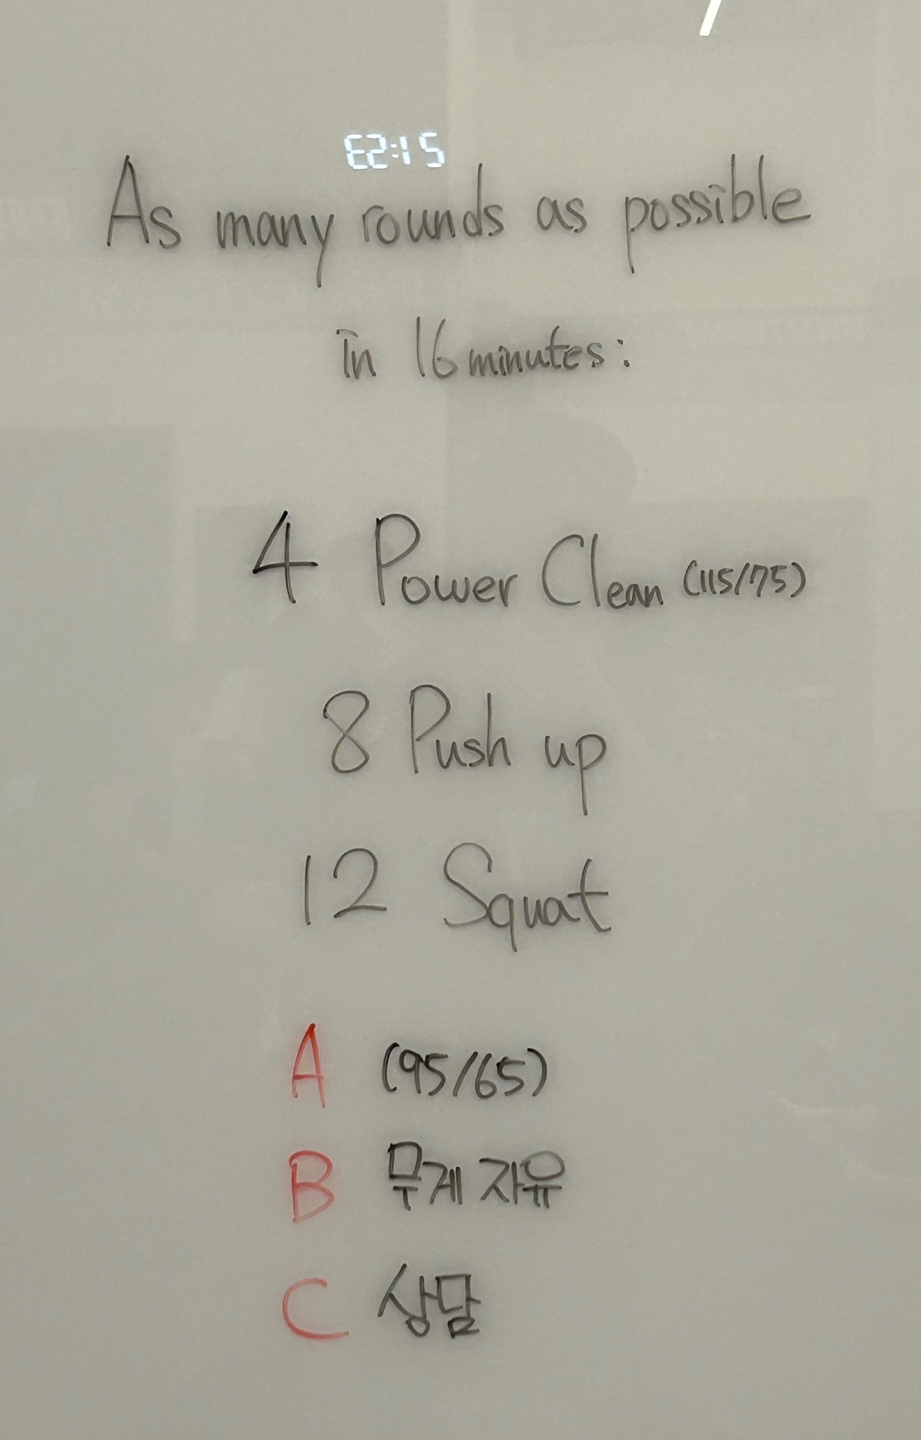 As many rounds as possible
in 16 minutes:
4 Power Clean (115/75)
8 Push up
12 Squat
A (95/65)
B 무게 자유
C 상담